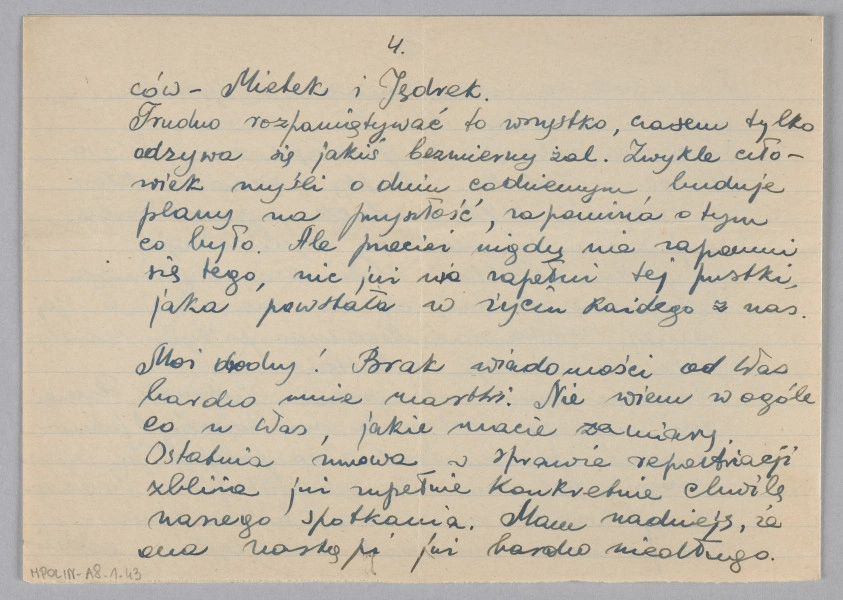 4.
ców – Mietek i Jędrek.
Trudno rozpamiętywać to wszystko, czasem tylko
odzywa się jakiś bezmierny żal. Zwykle czło-
wiek myśli o dniu codziennym buduje
plany na przyszłość, zapomina o tym
co było. Ale przecież nigdy nie zapomni
się tego, nic już nie zapełni tej pustki,
jaka powstała w życiu każdego z nas.
Moi drodzy! Brak wiadomości od Was
bardzo mnie martwi. Nie wiem wogóle
co u Was, jakie macie zamiary.
Ostatnia umowa w sprawie repatriacji
zbliża już zupełnie konkretnie chwilę
naszego spotkania. Mam nadzieję, że
ona nastąpi już bardzo niedługo.
MPOLIN-A8.1.43